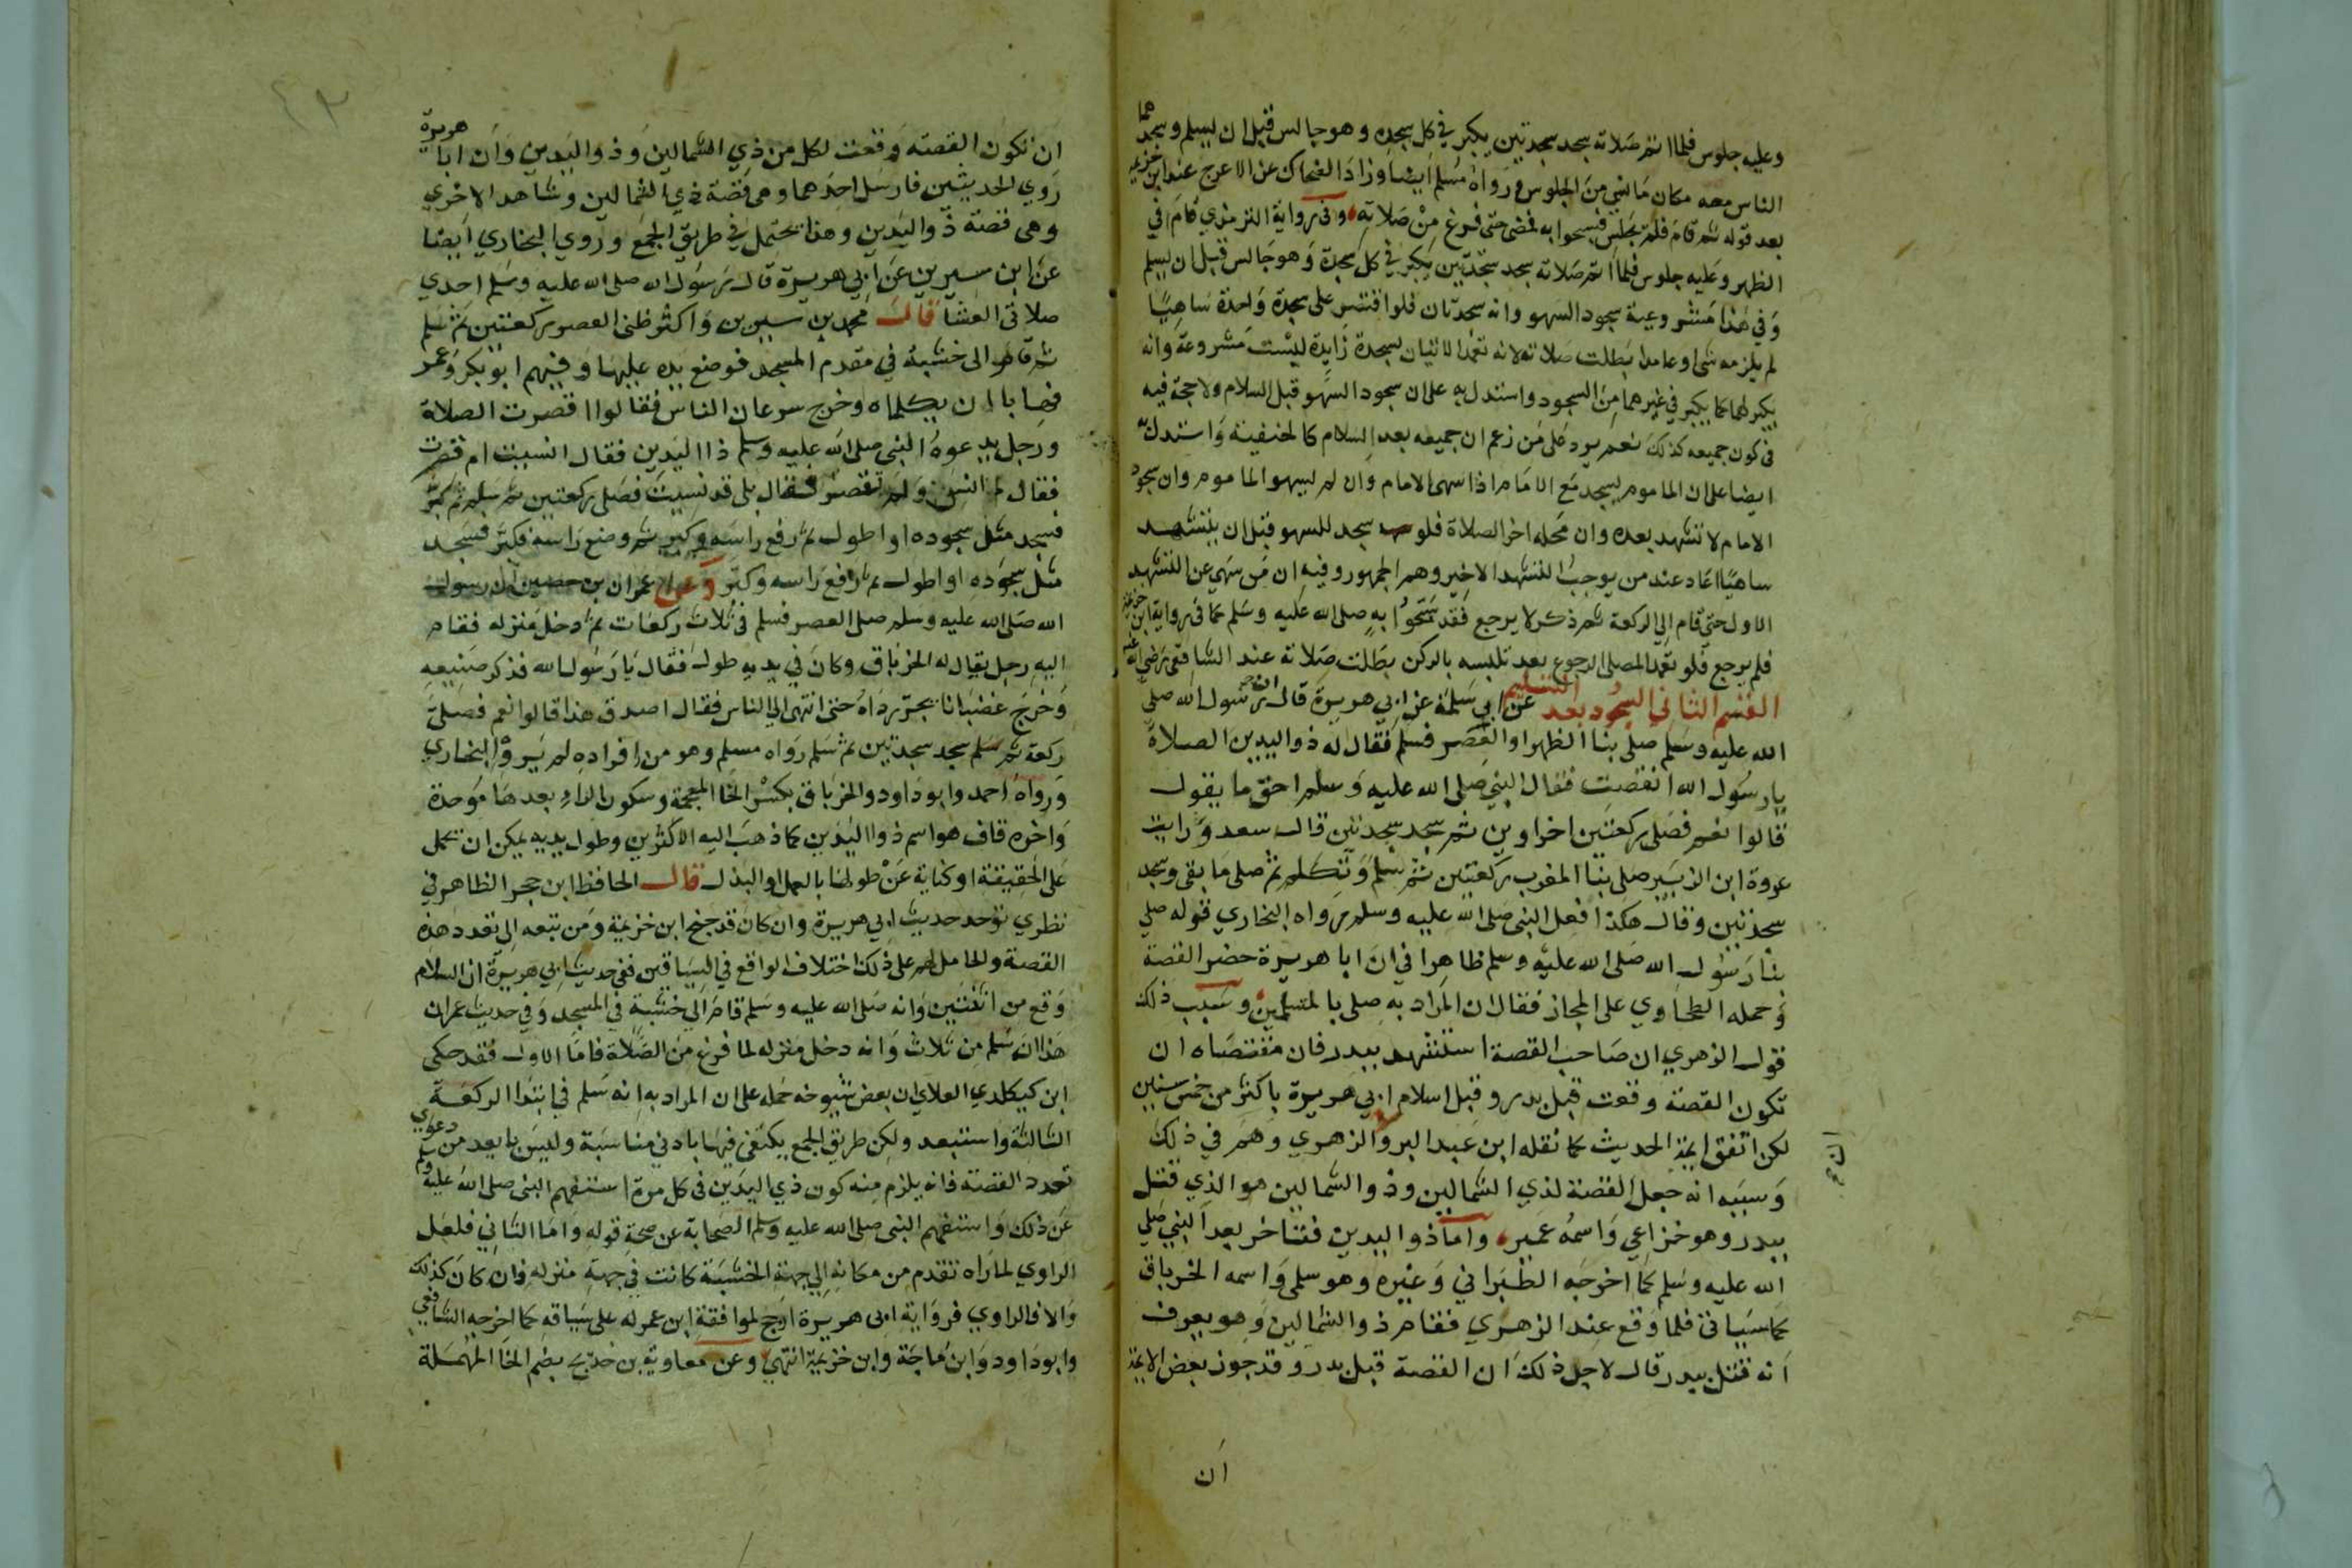 وعليه جلوس فلما اتم صلاته سجد سجدتين يكبر في كل سجدة وهو جالس قبل ان يسلم وسجدهما
الناس معه مكان ما نسي من الجلوس ورواه مسلم ايضا وزاد الضحاك عن الاعرج عند ابن خزيمة
بعد قوله ثم قام فلم يجلس فسبحوا به فمضى حتى فرغ من صلاته وفي رواية الترمذي قام في
الظهر وعليه جلوس فلما اتم صلاته سجد سجدتين يكبر في كل سجدة وهو جالس قبل ان يسلم
وفي هذا مشروعية سجود السهو وانه سجدتان فلو اقتصر على سجدة واحدة ساهيا
لم يلزمه شي او عامدا بطلت صلاته لانه تعمد الاتيان بسجدة زايدة ليست مشروعة وانه
يكبر لهما كما يكبر في غيرهما من السجود واستدل به على ان سجود السهو قبل السلام ولا حجة فيه
في كون جميعه كذلك نعم يرد على من زعم ان جميعه بعد السلام كالحنفية واستدل به
ايضا على ان الماموم يسجد مع الامام اذا سهى الامام وان لم يسهو الماموم وان سجود
الامام لا تشهد بعده وان محله اخر الصلاة فلو سجد للسهو قبل ان يتشهد
ساهيا اعاد عند من يوجب التشهد الاخير وهم الجمهور وفيه ان من سهى عن التشهد
الاول حتى قام الي الركعة ثم ذكر لا يرجع فقد سبحوا به صلى الله عليه وسلم كما في رواية ابن خزيمة
فلم يرجع فلو تعمد المصلى الرجوع بعد تلبسه بالركن بطلت صلاته عند الشافعي رضي الله عنه
القسم الثاني السجود بعد التسليم عن ابي سلمة عن ابي هريرة قال ان رسول الله صلى
الله عليه وسلم صلى بنا الظهر او العصر فسلم فقال له ذو اليدين الصلاة
يا رسول الله انقصت فقال النبي صلى الله عليه وسلم احق ما يقول
قالوا نعم فصلى ركعتين اخراوين ثم سجد سجدتين قال سعد ورايت
عروة ابن الزبير صلى بنا المغرب ركعتين ثم سلم وتكلم ثم صلى ما بقى وسجد
سجدتين وقال هكذا فعل النبي صلى الله عليه وسلم رواه البخاري قوله صلي
بنا رسول الله صلى الله عليه وسلم ظاهرا في ان ابا هريرة حضر القصة
وحمله الطحاوي على المجاز فقال ان المراد به صلى بالمسلمين وسبب ذلك
قول الزهري ان صاحب القصة استشهد ببدر فان مقتضاه ان
تكون القصة وقعت قبل بدر وقبل اسلام ابي هريرة باكثر من خمس سنين
لكن اتفق ايمة الحديث كما نقله ابن عبد البر والزهري وهم في ذلك
ان
وسببه انه جعل القصة لذي الشمالين وذو الشمالين هو الذي قتل
ببدر وهو خزاعي واسمه عمير واما ذو اليدين فتاخر بعد النبي صلى
الله عليه وسلم كما اخرجه الطبراني وغيره وهو سلمى واسمه الخرباق
كما سياتي فلما وقع عند الزهري فقام ذو الشمالين وهو يعرف
انه قتل ببدر قال لاجل ذلك ان القصة قبل بدر وقد جوز بعض الايمة
ان
٤٣
ان تكون القصة وقعت لكل من ذي الشمالين وذو اليدين وان ابا هريرة
روي الحديثين فارسل احدهما وهي قصة ذي الشمالين وشاهد الاخري
وهي قصة ذو اليدين وهذا يحتمل في طريق الجمع وروي البخاري ايضا
عن ابن سيرين عن ابي هريرة قال رسول الله صلى الله عليه وسلم احدي
صلاتي العشا قال محمد بن سيرين واكثر ظني العصر ركعتين ثم سلم
ثم قام الى خشبة في مقدم المسجد فوضع يده عليها وفيهم ابو بكر وعمر
فهابا ان يكلماه وخرج سرعان الناس فقالوا اقصرت الصلاة
ورجل يدعوه النبي صلى الله عليه وسلم ذا اليدين فقال انسيت ام قصرت
فقال لم انس ولم تقصر فقال بلى قد نسيت فصلى ركعتين ثم سلم ثم كبر
فسجد مثل سجوده او اطول ثم رفع راسه وكبر ثم وضع راسه فكبر فسجد
مثل سجوده او اطول ثم رفع راسه وكبر وعن عمران بن حصين ان رسول
الله صلى الله عليه وسلم صلى العصر فسلم في ثلاث ركعات ثم دخل منزله فقام
اليه رجل يقال له الخرباق وكان في يديه طول فقال يا رسول الله فذكر صنيعه
وخرج غضبانا يجر رداه حتى انتهى الي الناس فقال اصدق هذا قالوا نعم فصلى
ركعة ثم سلم سجد سجدتين ثم سلم رواه مسلم وهو من افراده لم يروه البخاري
ورواه احمد وابو داود والخرباق بكسر الخا المعجمة وسكون الراء بعدها موحدة
واخره قاف هو اسم ذو اليدين كما ذهب اليه الاكثرين وطول يديه يمكن ان يحمل
على الحقيقة او كناية عن طولها بالعمل او البذل قال الحافظ ابن حجر الظاهر في
نظري توحد حديث ابي هريرة وان كان قد جنح ابن خزيمة ومن تبعه الى تعدد هذه
القصة والحامل لهم على ذلك اختلاف الواقع في السياقين ففي حديث ابي هريرة ان السلام
وقع من اثنتين وانه صلى الله عليه وسلم قام الي خشبة في المسجد وفي حديث عمران
هذا ان سلم من ثلاث وانه دخل منزله لما فرغ من الصلاة فاما الاول فقد حكى
ابن كيكلدي العلاي ان بعض شيوخه حمله على ان المراد به انه سلم في ابتدا الركعة
الثالثة واستبعد ولكن طريق الجمع يكتفى فيها بادني مناسبة وليس بابعد من دعوي
تعدد القصة فانه يلزم منه كون ذي اليدين في كل مرة استفهم النبي صلى الله عليه وسلم
عن ذلك واستفهم النبي صلى الله عليه وسلم الصحابة عن صحة قوله واما الثاني فلعل
الراوي لما راه تقدم من مكانه الي جهة الخشبة كانت في جهة منزله فان كان كذلك
والا فالراوي فرواية ابي هريرة ارجح لموافقة ابن عمر له على سياقه كما اخرجه الشافعي
وابو داود وابن ماجة وابن خزيمة انتهى وعن معاوية بن خديج بضم الخا المهملة